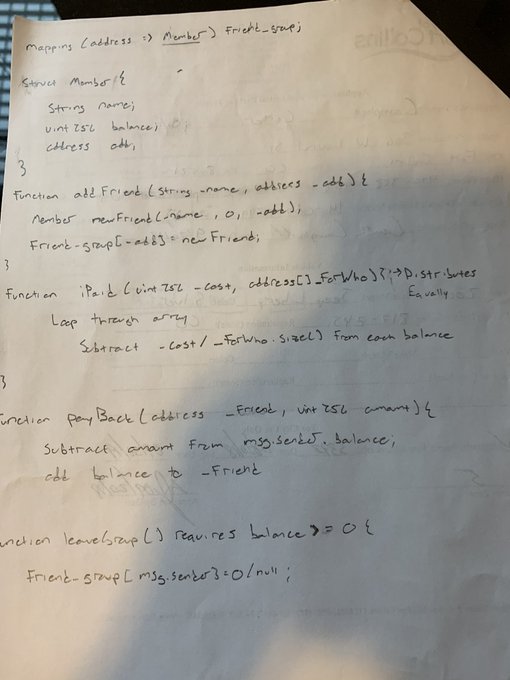 mapping (address => Member) Friend_group;
Struct Member {
String name;
uint 256 balance;
address add;
}
Function addFriend (string _name, address _add) {
Member newFriend (_name, 0, _add);
Friend_group[_add] = newFriend;
}
Function iPaid (uint 256 _cost, address[] _ForWho) { → Distributes
Equally
Loop through array
Subtract _cost / _ForWho.size() From each balance
}
Function payBack (address _Friend, uint 256 amount) {
Subtract amount From msg.sender.balance;
add balance to _Friend
unction leaveGroup () requires balance >= 0 {
Friend_group [msg.sender] = 0/null;